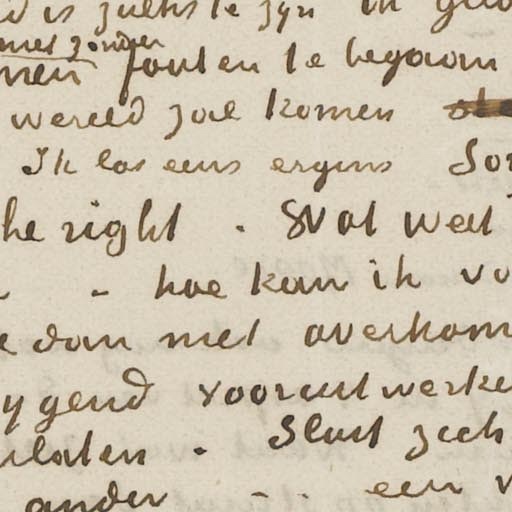 is zulks te zyn in
met zonder
men fouten te begaan
wereld zal komen
Ik las eens ergens
he right . Wat weet
- hoe kan ik vo
dan met overkom
ygend vooruit werke
laten . Sluit zich
ander - . een v